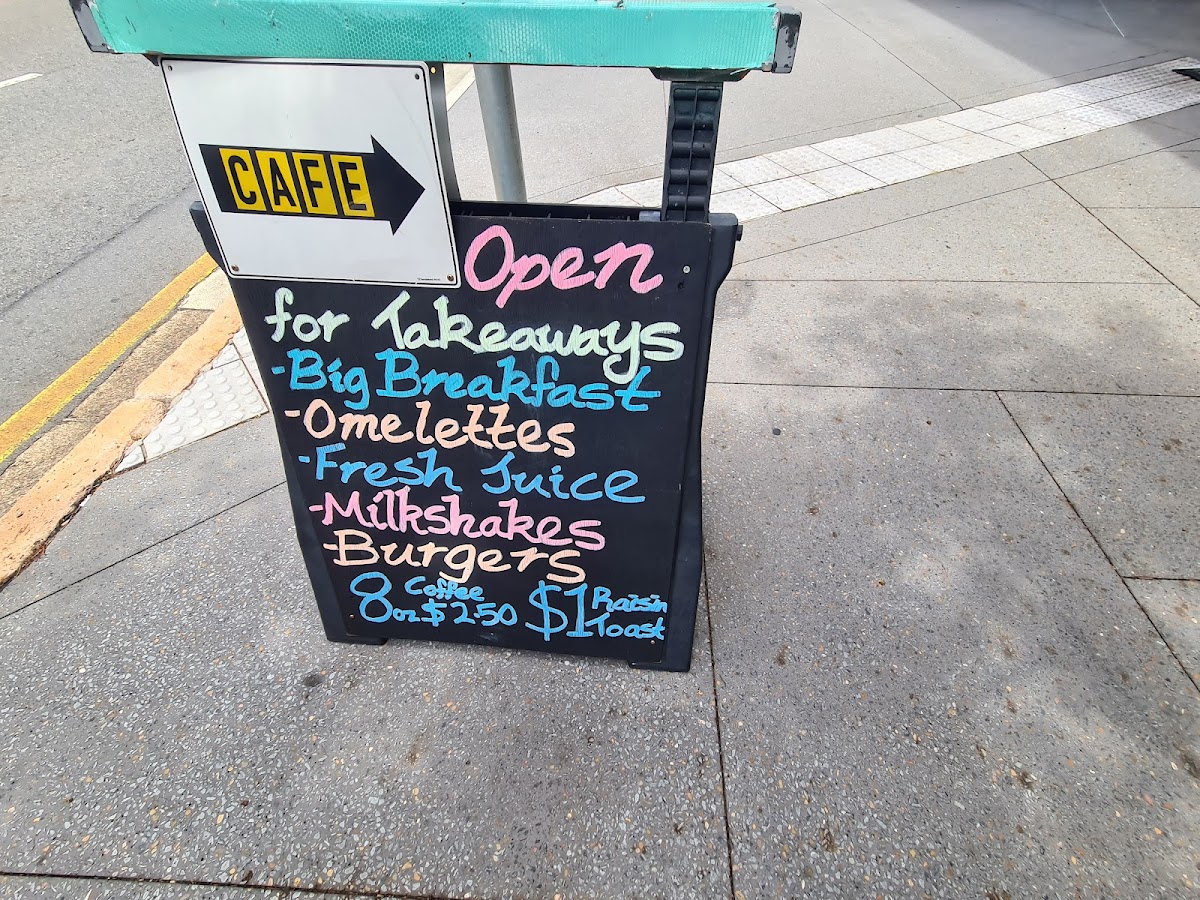 CAFE
Open
for Takeaways
-Big Breakfast
-Omelettes
-Fresh Juice
-Milkshakes
-Burgers
8oz Coffee $2.50
$1 Raisin Toast